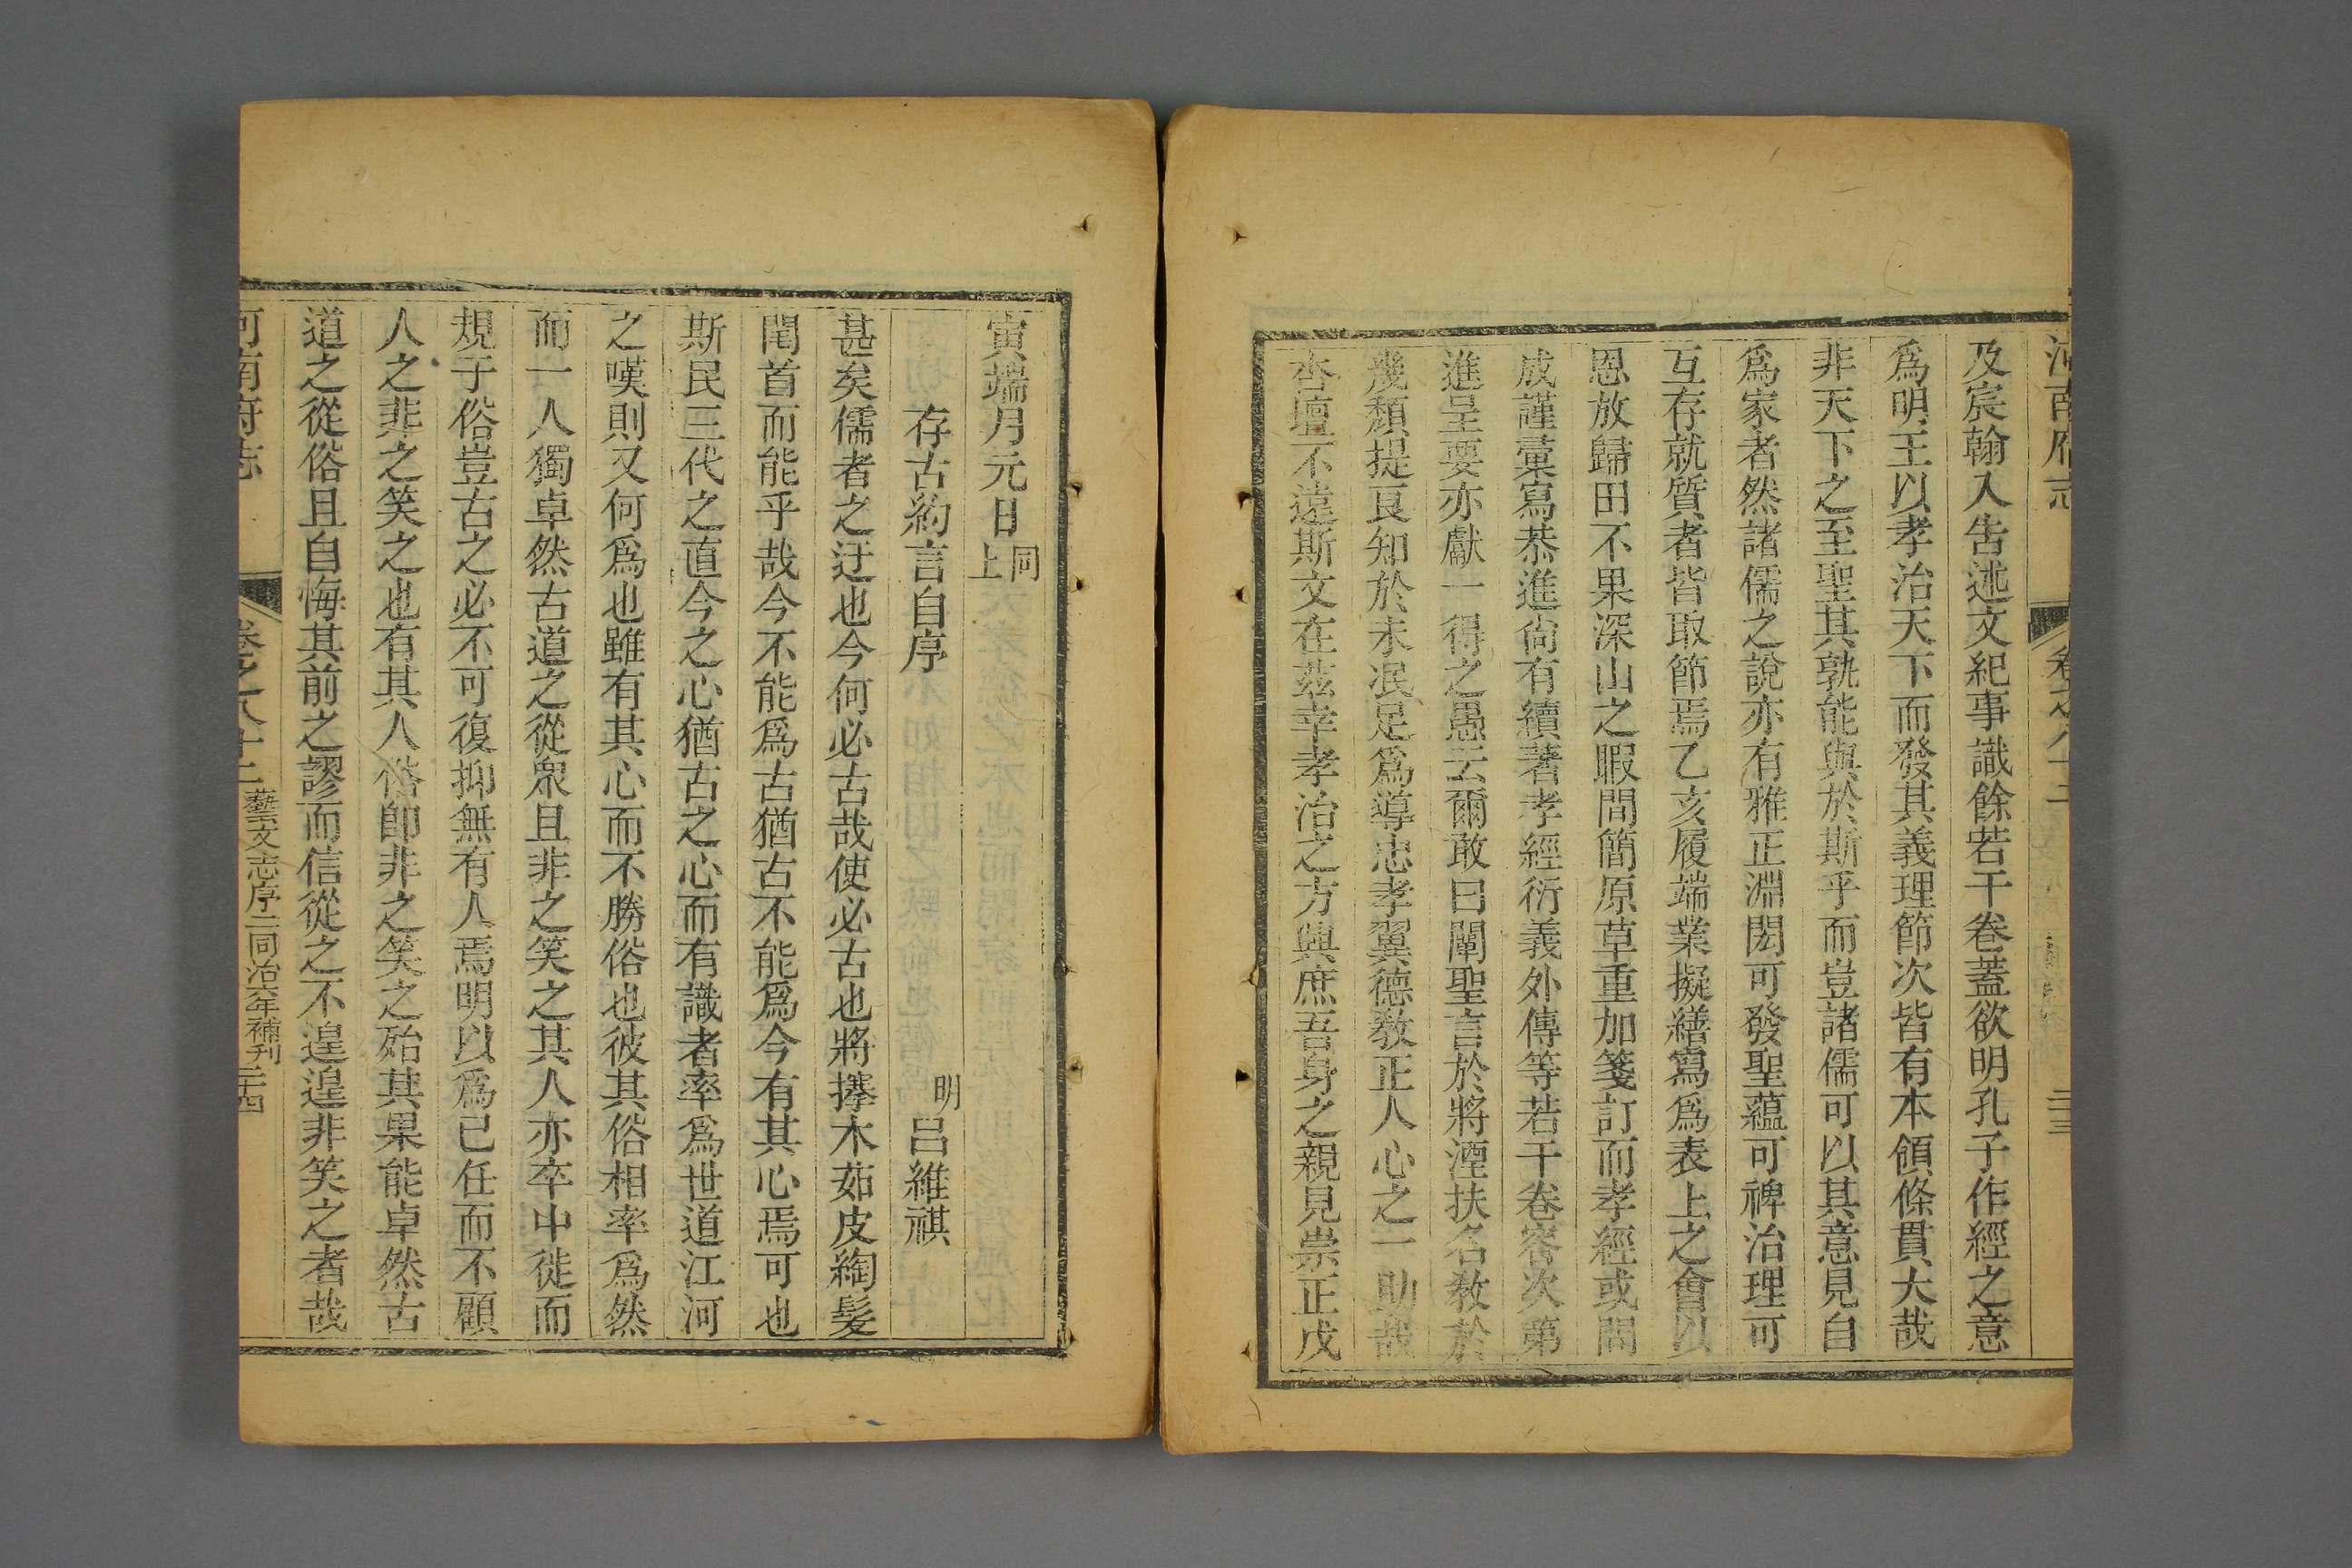 河南府志 卷之八十二 三三
及宸翰入告述文紀事識餘若干卷蓋欲明孔子作經之意
爲明王以孝治天下而發其義理節次皆有本領條貫大哉
非天下之至聖其孰能與於斯乎而豈諸儒可以其意見自
爲家者然諸儒之說亦有雅正淵閎可發聖蘊可裨治理可
互存就質者皆取節焉乙亥履端業擬繕寫爲表上之會以
恩放歸田不果深山之暇間簡原草重加箋訂而孝經或問
成謹彚寫恭進尙有續著孝經衍義外傳等若干卷容次第
進呈要亦獻一得之愚云爾敢曰闡聖言於將湮扶名敎於
幾頹提良知於未泯足爲導忠孝翼德敎正人心之一助哉
杏壇不遠斯文在茲幸孝治之方興庶吾身之親見崇正戊
寅端月元日同上
存古約言自序
明 呂維祺
甚矣儒者之迂也今何必古哉使必古也將搴木茹皮綯髮
閏首而能乎哉今不能爲古猶古不能爲今有其心焉可也
斯民三代之直今之心猶古之心而有識者率爲世道江河
之嘆則又何爲也雖有其心而不勝俗也彼其俗相率爲然
而一人獨卓然古道之從衆且非之笑之其人亦卒中徙而
規于俗豈古之必不可復抑無有人焉明以爲己任而不顧
人之非之笑之也有其人俗卽非之笑之殆其果能卓然古
道之從俗且自悔其前之謬而信從之不遑遑非笑之者哉
河南府志 卷之八十二 藝文志序二 同治六年補刋 三十四